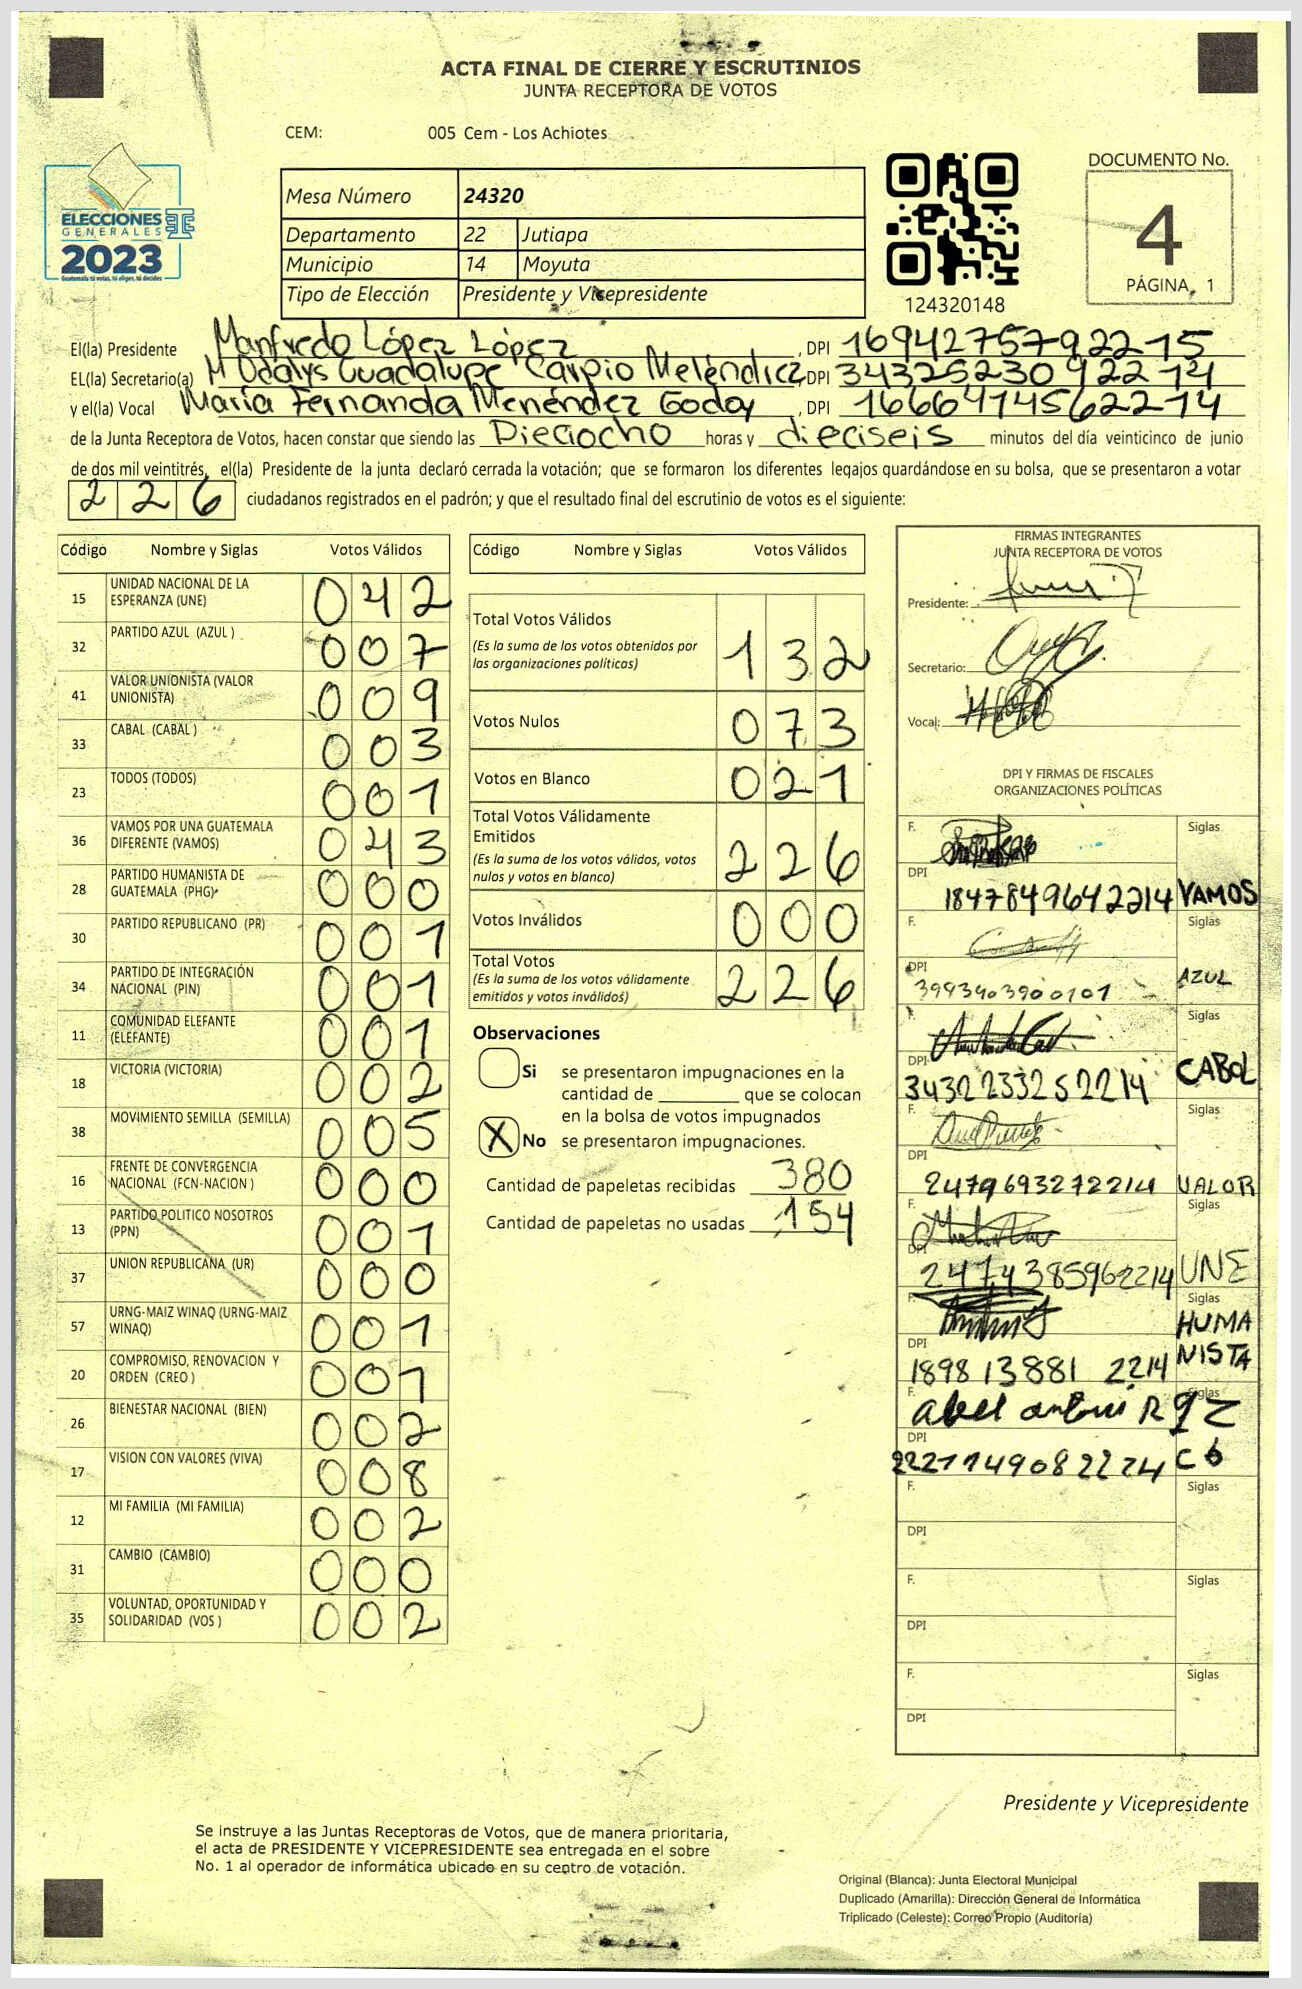 ACTA FINAL DE CIERRE Y ESCRUTINIOS
JUNTA RECEPTORA DE VOTOS
CEM: 005 Cem - Los Achiotes
ELECCIONES
GENERALES
2023
Guatemala tú votas, tú eliges, tú decides
Mesa Número 24320
Departamento 22 Jutiapa
Municipio 14 Moyuta
Tipo de Elección Presidente y Vicepresidente
124320148
DOCUMENTO No.
4
PÁGINA 1
El(la) Presidente Manfredo López López, DPI 1694275792215
EL(la) Secretario(a) M Odalys Guadalupe Carpio Meléndez DPI 3432523092214
y el(la) Vocal María Fernanda Menéndez Godoy, DPI 1666414562214
de la Junta Receptora de Votos, hacen constar que siendo las Dieciocho horas y dieciseis minutos del día veinticinco de junio
de dos mil veintitrés, el(la) Presidente de la junta declaró cerrada la votación; que se formaron los diferentes legajos guardándose en su bolsa, que se presentaron a votar
226 ciudadanos registrados en el padrón; y que el resultado final del escrutinio de votos es el siguiente:
Código Nombre y Siglas Votos Válidos
15 UNIDAD NACIONAL DE LA ESPERANZA (UNE) 042
32 PARTIDO AZUL (AZUL ) 007
41 VALOR UNIONISTA (VALOR UNIONISTA) 009
33 CABAL (CABAL ) 003
23 TODOS (TODOS) 001
36 VAMOS POR UNA GUATEMALA DIFERENTE (VAMOS) 043
28 PARTIDO HUMANISTA DE GUATEMALA (PHG) 000
30 PARTIDO REPUBLICANO (PR) 001
34 PARTIDO DE INTEGRACIÓN NACIONAL (PIN) 001
11 COMUNIDAD ELEFANTE (ELEFANTE) 001
18 VICTORIA (VICTORIA) 002
38 MOVIMIENTO SEMILLA (SEMILLA) 005
16 FRENTE DE CONVERGENCIA NACIONAL (FCN-NACION ) 000
13 PARTIDO POLITICO NOSOTROS (PPN) 001
37 UNION REPUBLICANA (UR) 000
57 URNG-MAIZ WINAQ (URNG-MAIZ WINAQ) 001
20 COMPROMISO, RENOVACION Y ORDEN (CREO ) 001
26 BIENESTAR NACIONAL (BIEN) 002
17 VISION CON VALORES (VIVA) 008
12 MI FAMILIA (MI FAMILIA) 002
31 CAMBIO (CAMBIO) 000
35 VOLUNTAD, OPORTUNIDAD Y SOLIDARIDAD (VOS ) 002
Código Nombre y Siglas Votos Válidos
Total Votos Válidos 132
(Es la suma de los votos obtenidos por
las organizaciones políticas)
Votos Nulos 073
Votos en Blanco 021
Total Votos Válidamente
Emitidos 226
(Es la suma de los votos válidos, votos
nulos y votos en blanco)
Votos Inválidos 000
Total Votos 226
(Es la suma de los votos válidamente
emitidos y votos inválidos)
Observaciones
Si se presentaron impugnaciones en la
cantidad de ________ que se colocan
en la bolsa de votos impugnados
X No se presentaron impugnaciones.
Cantidad de papeletas recibidas 380
Cantidad de papeletas no usadas 154
FIRMAS INTEGRANTES
JUNTA RECEPTORA DE VOTOS
Presidente:
Secretario:
Vocal:
DPI Y FIRMAS DE FISCALES
ORGANIZACIONES POLÍTICAS
F. Siglas
DPI 1847849642214 VAMOS
F. Siglas
DPI 3983903900101 AZUL
F. Siglas
DPI 3432233252214 CABOL
F. Siglas
DPI 2479693272214 VALOR
F. Siglas
DPI 2474385962214 UNE
F. Siglas
HUMA
DPI 1898 13881 2214 NISTA
F. abel Siglas
DPI 2221149082214
F. Siglas
DPI
F. Siglas
DPI
F. Siglas
DPI
Presidente y Vicepresidente
Se instruye a las Juntas Receptoras de Votos, que de manera prioritaria,
el acta de PRESIDENTE Y VICEPRESIDENTE sea entregada en el sobre
No. 1 al operador de informática ubicado en su centro de votación.
Original (Blanca): Junta Electoral Municipal
Duplicado (Amarilla): Dirección General de Informática
Triplicado (Celeste): Correo Propio (Auditoría)